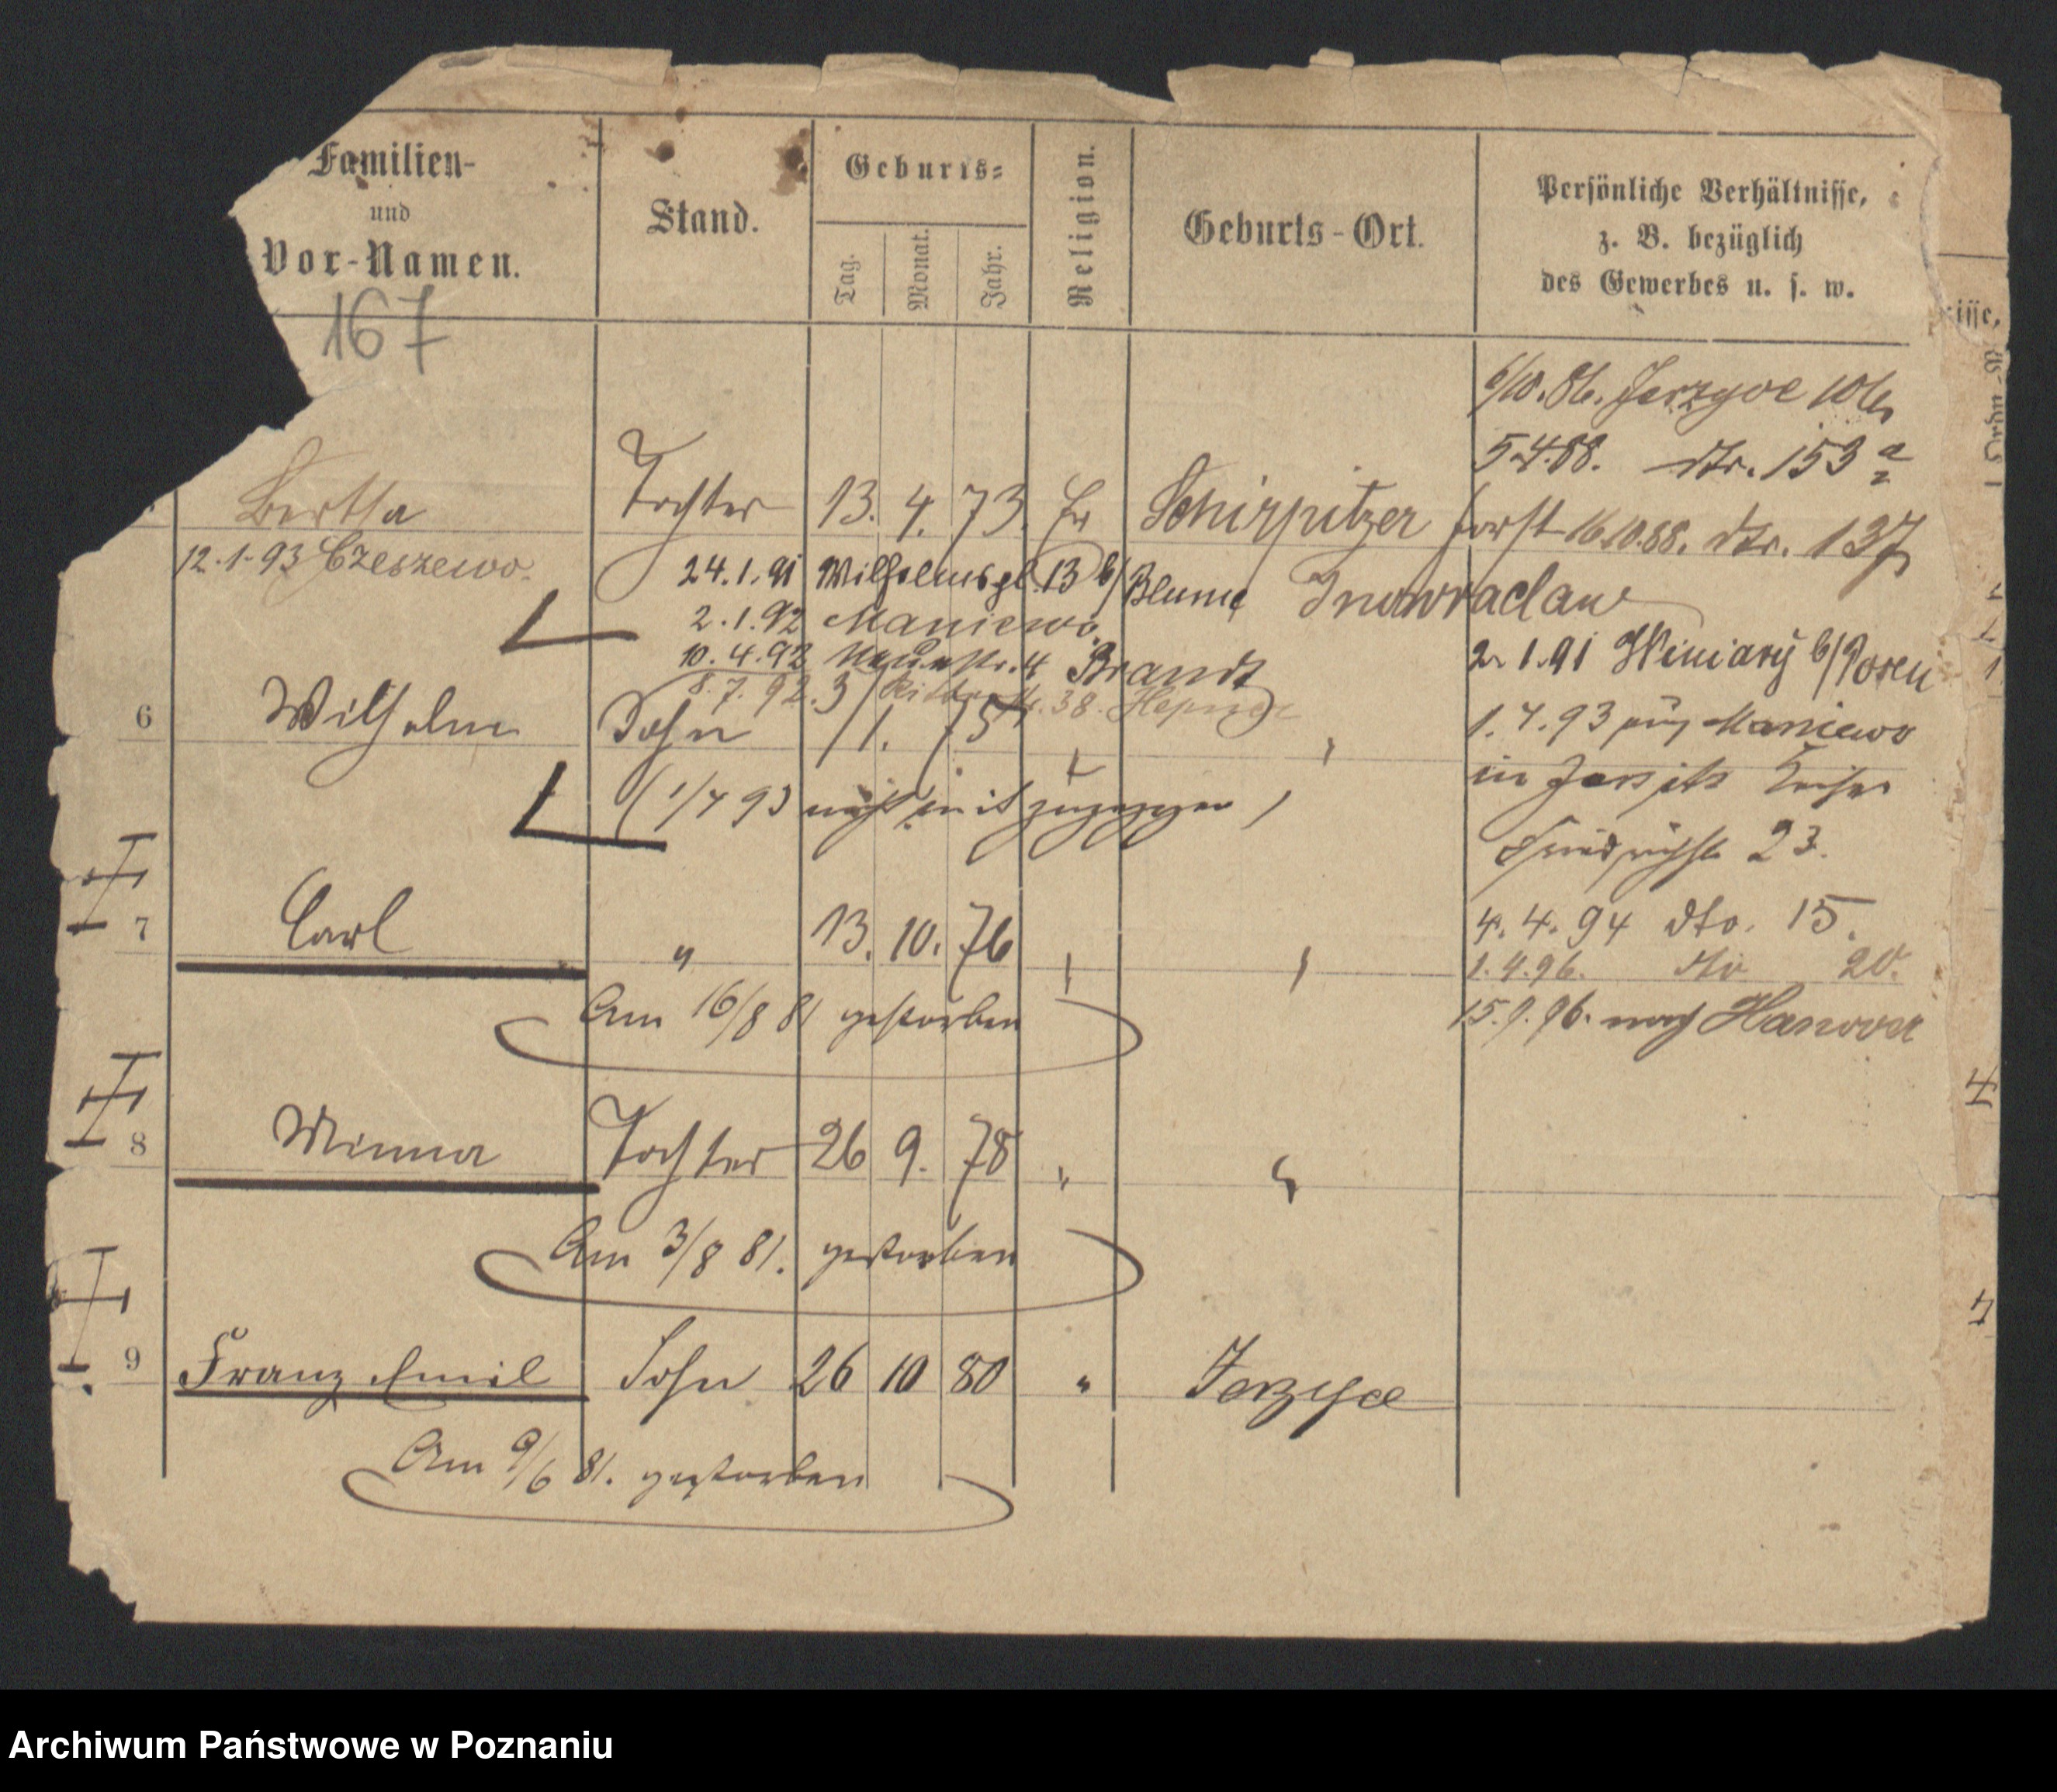 Familien-
und
Vor-Namen.
Stand.
Geburts-
Tag.
Monat.
Jahr.
Religion.
Geburts-Ort.
Persönliche Verhältnisse,
z. B. bezüglich
des Gewerbes u. s. w.
isse,
167
6/10.86. Jerzyce 106
5.4.88. dto. 153 a
Bertha Tochter 13. 4. 73. Ev Schirpitzer Forst 16.10.88. dto. 137
12.1.93 Czeszewo. 24.1.91 Wilhelmspl. 13 b/ Blume Inowraclaw
2.1.92 Maniewo
10.4.92 4 Brandt 2.1.91 Winiary b/Posen
8.7.92 Ritterstr. 38.
6 Wilhelm Sohn 11. 75 1.4.93 Maniewo
in Jersitz Kaiser
(1/4 93 nicht mit zugezogen)
Friedrichstr 23.
7 Carl " 13. 10. 76 4.4.94 dto. 15.
1.4.96. dto 20.
Am 16/8 81 gestorben 15.9.96. nach Hanover
8 Minna Tochter 26 9. 78 "
Am 3/8 81. gestorben
9 Franz Emil Sohn 26 10 80 " Jerzyce
Am 9/6 81. gestorben
Archiwum Państwowe w Poznaniu